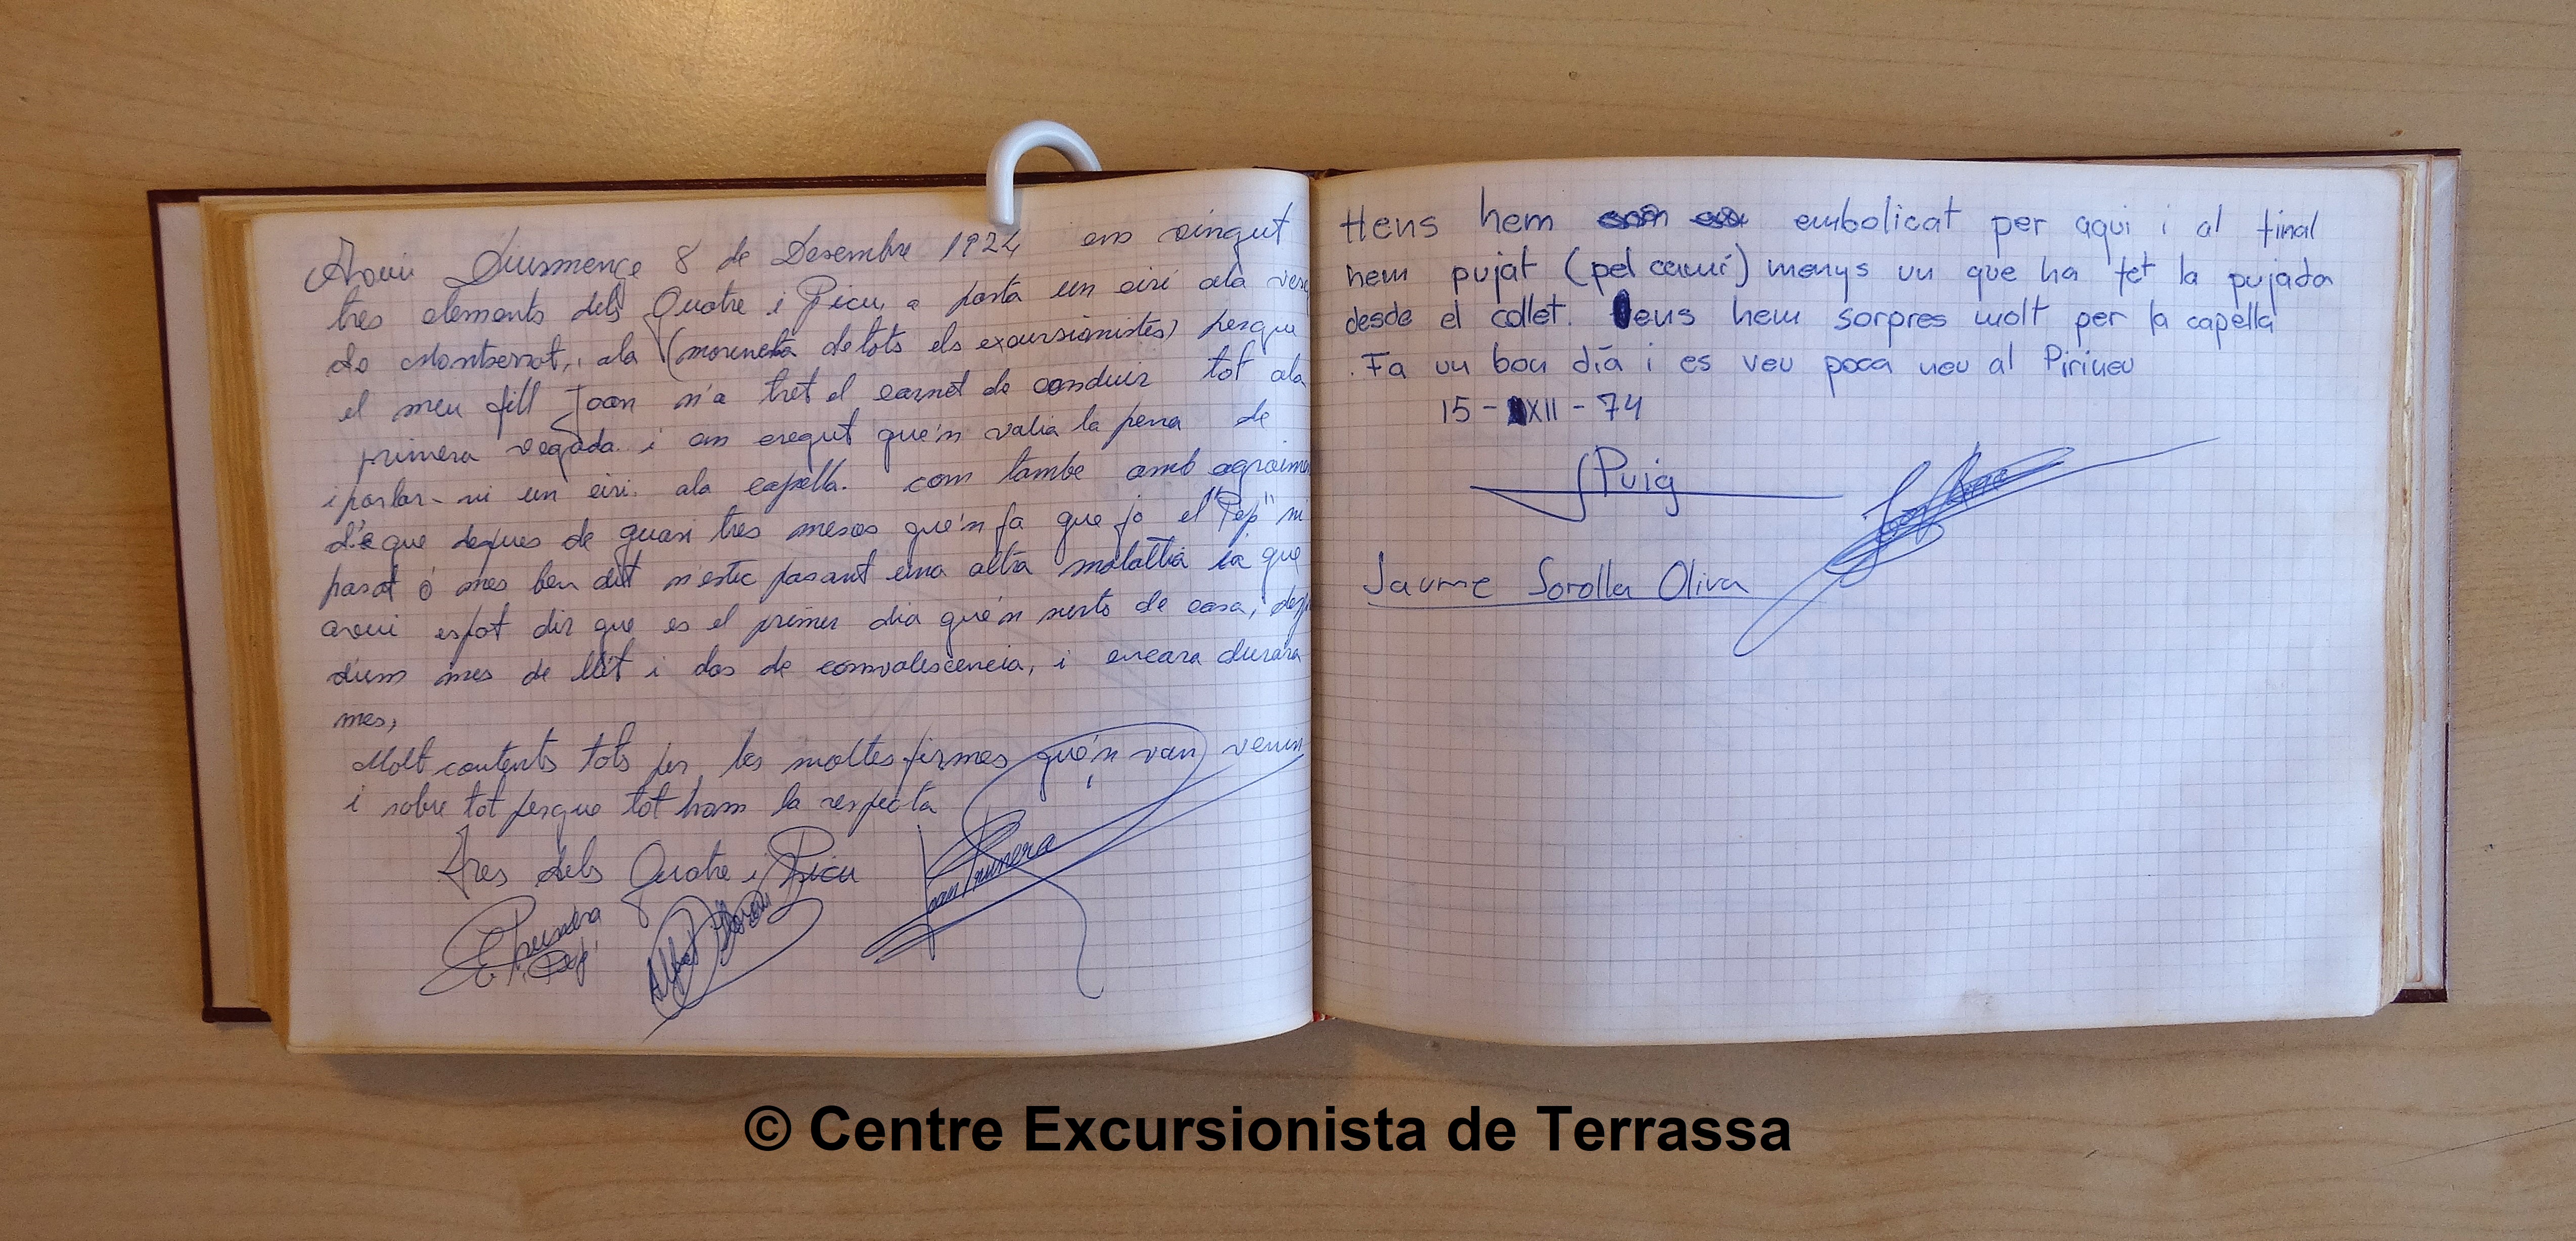 Avui Diusmenge 8 de Desembre 1974 em vingut
tres elements dels Quatre i Picu, a porta un ciri ala verg
de Montserrat, i ala (moreneta de tots els excursionistes) perque
el meu fill Joan n'a tret el carnet de conduir tot ala
primera vegada i em cregut que'n valia la pena de
i portar-ni un ciri ala capella. com tambe amb agraime
d'e que depues de quasi tres mesos que'n fa que jo el "Pep" ni
pasat ó mes ben dit n'estic pasant una altra malaltia ia que
avui espot dir que es el primer dia que'n surto de casa, desp
d'um mes de llit i dos de comvalescencia, i encara durara
mes,
Molt contents tots per les moltes firmes que'n van venin
i sobre tot perque tot hom la respecta
Tres dels Quatre i Picu
Prunera
Pep
Albert
Joan Prunera
Hens hem embolicat per aqui i al final
hem pujat (pel camí) menys un que ha fet la pujada
desde el collet. Hens hem sorpres molt per la capella
. Fa un bon día i es veu poca neu al Pirineu
15 - XII - 74
J Puig
Jaume Sorolla Oliva
© Centre Excursionista de Terrassa